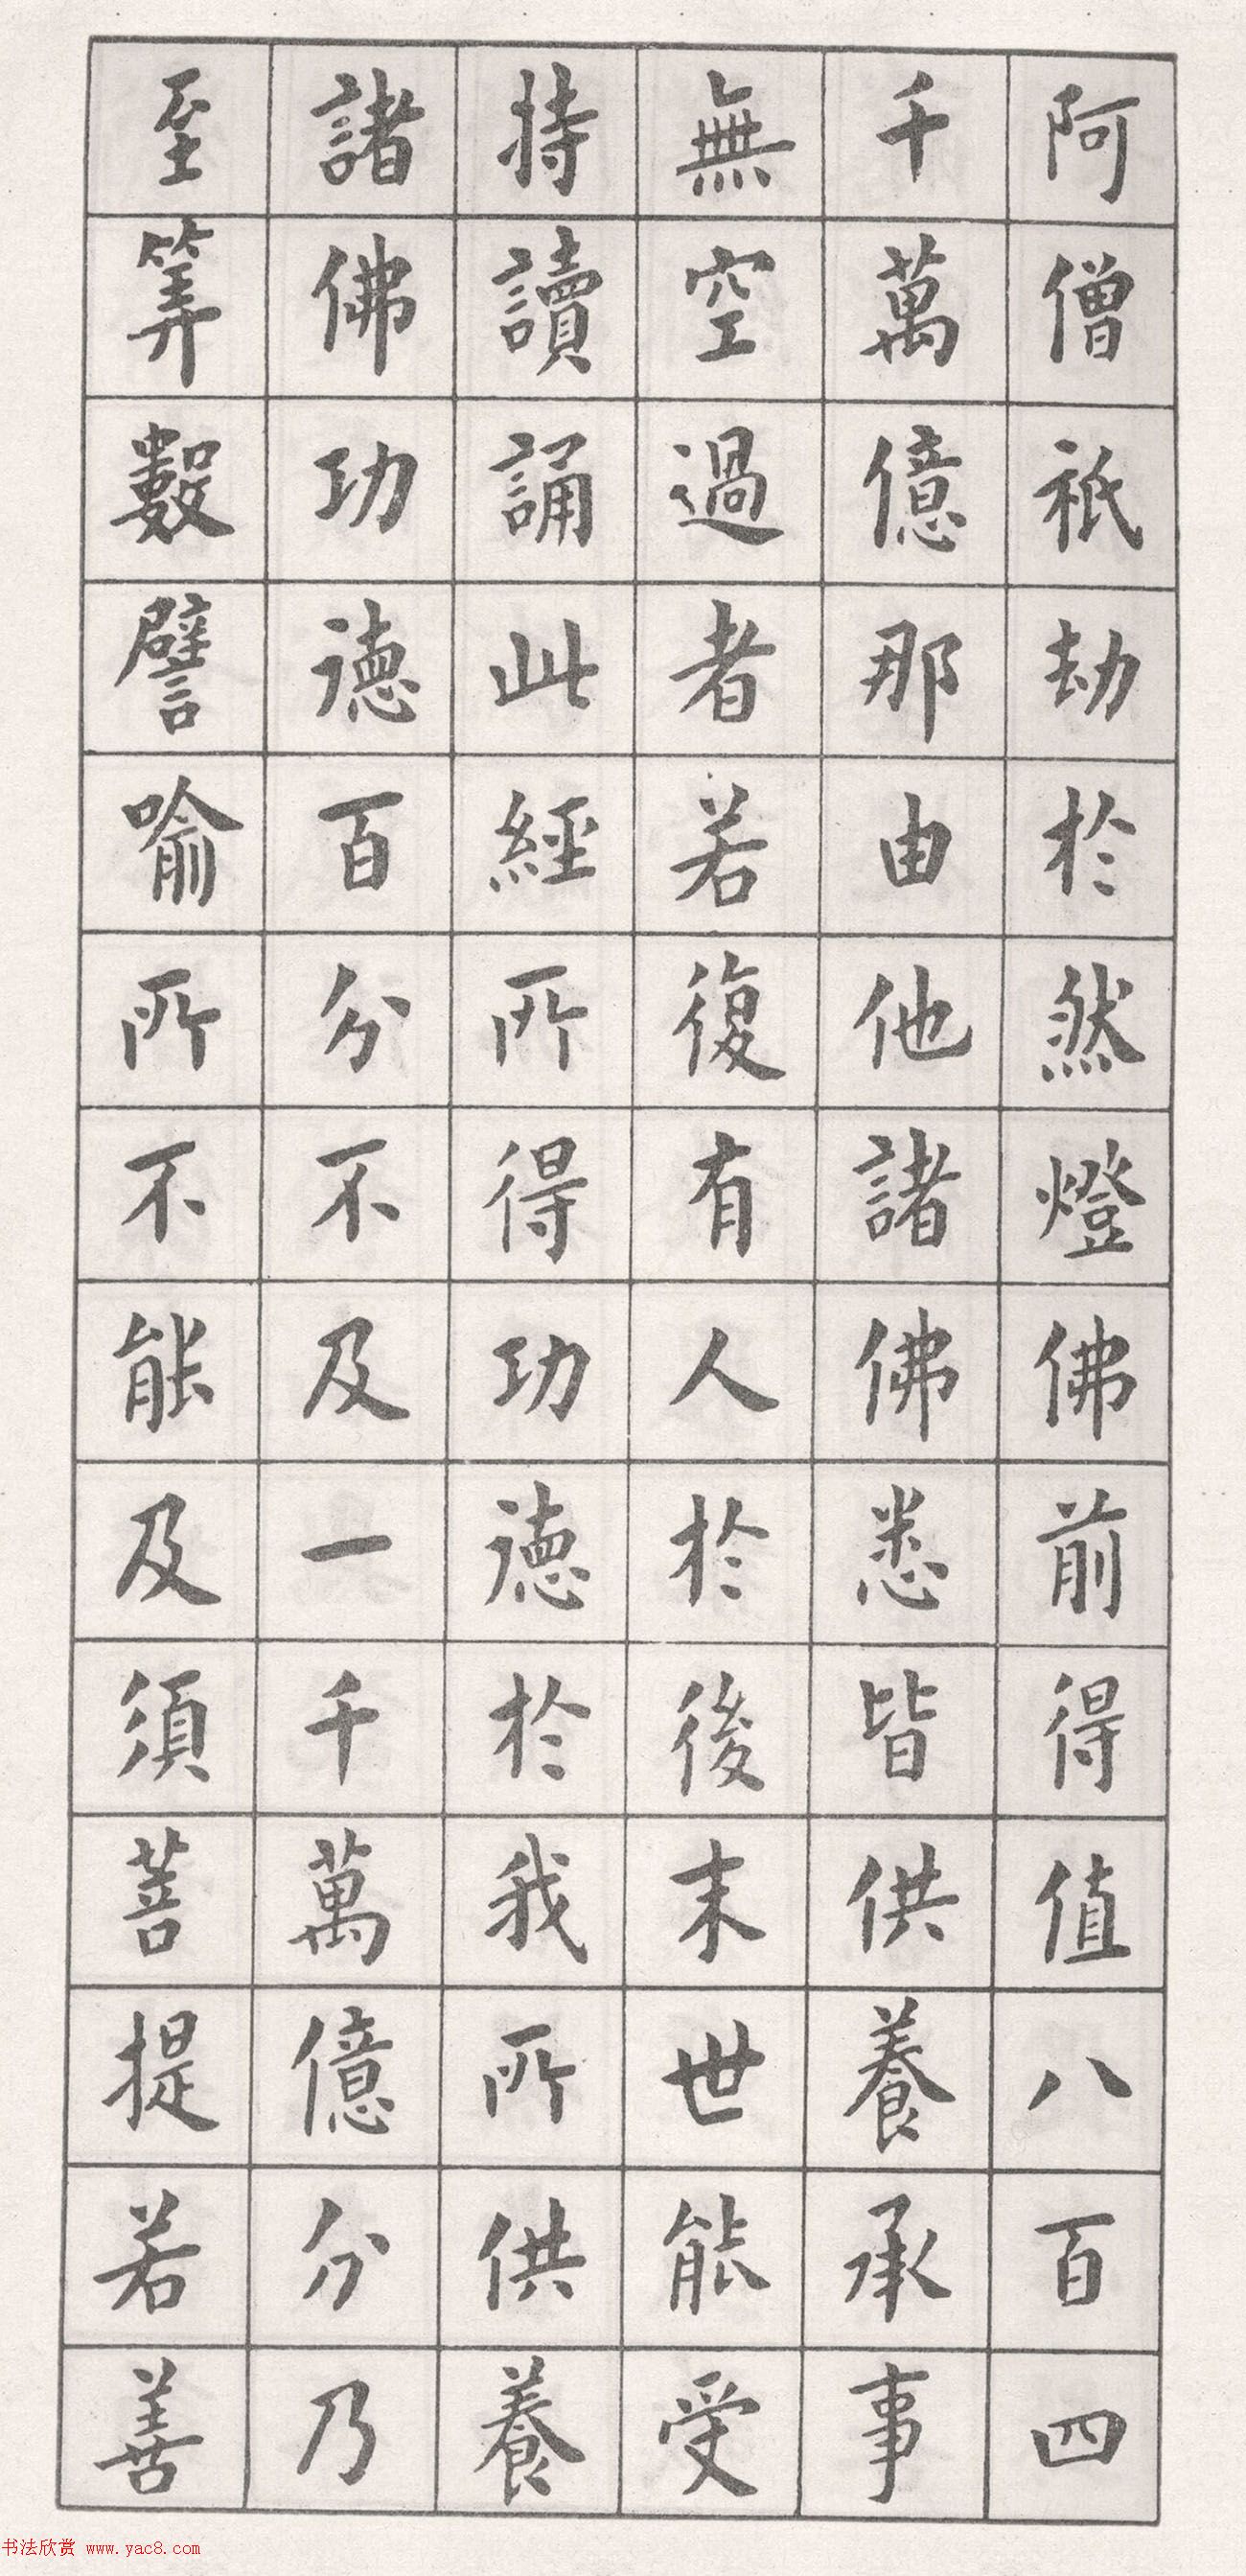 阿僧祇劫於然燈佛前得值八百四
千萬億那由他諸佛悉皆供養承事
無空過者若復有人於後末世能受
持讀誦此經所得功德於我所供養
諸佛功德百分不及一千萬億分乃
至筭數譬喻所不能及須菩提若善
书法欣赏 www.yac8.com